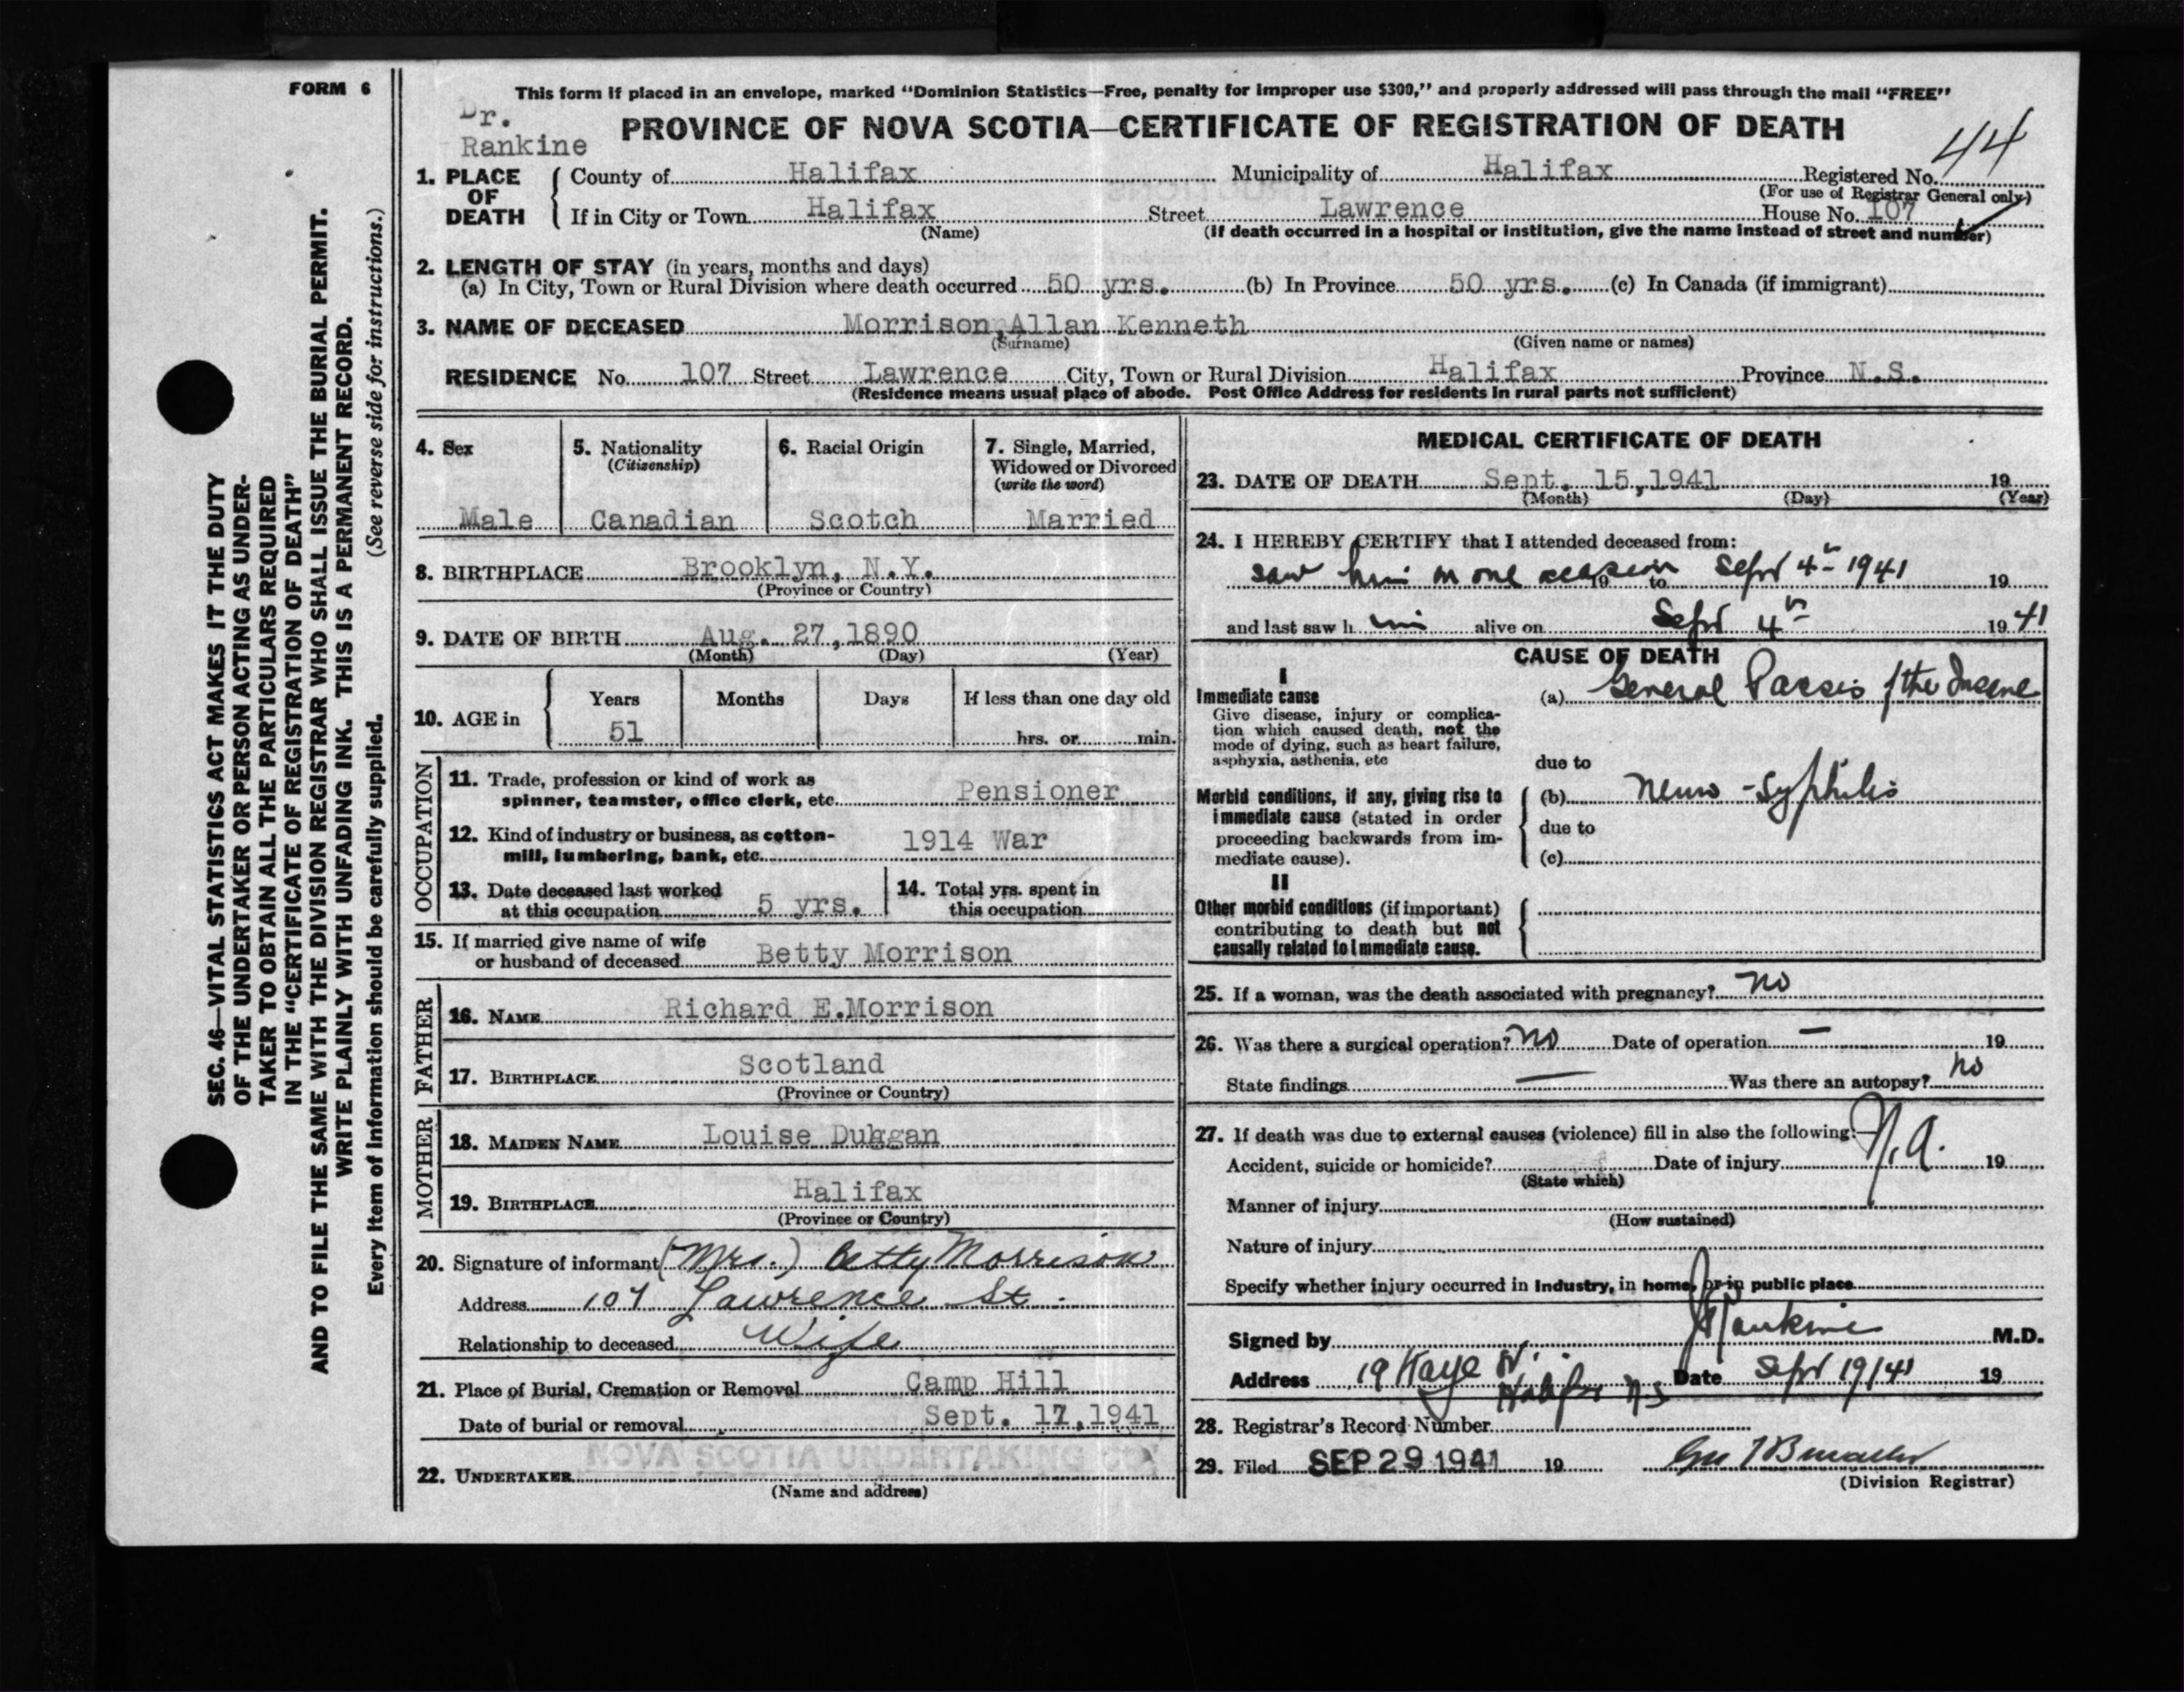 FORM 6
SEC. 46—VITAL STATISTICS ACT MAKES IT THE DUTY
OF THE UNDERTAKER OR PERSON ACTING AS UNDER-
TAKER TO OBTAIN ALL THE PARTICULARS REQUIRED
IN THE "CERTIFICATE OF REGISTRATION OF DEATH"
AND TO FILE THE SAME WITH THE DIVISION REGISTRAR WHO SHALL ISSUE THE BURIAL PERMIT.
WRITE PLAINLY WITH UNFADING INK. THIS IS A PERMANENT RECORD.
Every item of information should be carefully supplied. (See reverse side for instructions.)
This form if placed in an envelope, marked "Dominion Statistics—Free, penalty for improper use $300," and properly addressed will pass through the mail "FREE"
Dr.
Rankine
PROVINCE OF NOVA SCOTIA—CERTIFICATE OF REGISTRATION OF DEATH
44
1. PLACE OF DEATH County of Halifax Municipality of Halifax Registered No.
(For use of Registrar General only)
If in City or Town Halifax Street Lawrence House No. 107
(Name) (If death occurred in a hospital or institution, give the name instead of street and number)
2. LENGTH OF STAY (in years, months and days)
(a) In City, Town or Rural Division where death occurred 50 yrs. (b) In Province 50 yrs. (c) In Canada (if immigrant)
3. NAME OF DECEASED Morrison, Allan Kenneth
(Surname) (Given name or names)
RESIDENCE No. 107 Street Lawrence City, Town or Rural Division Halifax Province N.S.
(Residence means usual place of abode. Post Office Address for residents in rural parts not sufficient)
4. Sex
Male
5. Nationality
(Citizenship)
Canadian
6. Racial Origin
Scotch
7. Single, Married,
Widowed or Divorced
(write the word)
Married
8. BIRTHPLACE Brooklyn, N.Y.
(Province or Country)
9. DATE OF BIRTH Aug. 27, 1890
(Month) (Day) (Year)
10. AGE in Years Months Days If less than one day old
51 hrs. or min.
OCCUPATION
11. Trade, profession or kind of work as
spinner, teamster, office clerk, etc. Pensioner
12. Kind of industry or business, as cotton-
mill, lumbering, bank, etc. 1914 War
13. Date deceased last worked
at this occupation 5 yrs.
14. Total yrs. spent in
this occupation
15. If married give name of wife
or husband of deceased Betty Morrison
FATHER
16. NAME Richard E.Morrison
17. BIRTHPLACE Scotland
(Province or Country)
MOTHER
18. MAIDEN NAME Louise
19. BIRTHPLACE Halifax
(Province or Country)
20. Signature of informant (Mrs.) Betty Morrison
Address 107 Lawrence St.
Relationship to deceased Wife
21. Place of Burial, Cremation or Removal Camp Hill
Date of burial or removal Sept. 17, 1941
NOVA SCOTIA UNDERTAKING CO
22. UNDERTAKER
(Name and address)
MEDICAL CERTIFICATE OF DEATH
23. DATE OF DEATH Sept. 15, 1941 19
(Month) (Day) (Year)
24. I HEREBY CERTIFY that I attended deceased from:
saw him on one 19 to Sept 4th 1941 19
and last saw h im alive on Sept 4th 19 41
CAUSE OF DEATH
I
Immediate cause (a) General Paresis of the Insane
Give disease, injury or complica-
tion which caused death, not the
mode of dying, such as heart failure,
asphyxia, asthenia, etc
due to
Morbid conditions, if any, giving rise to
immediate cause (stated in order
proceeding backwards from im-
mediate cause).
(b) Neuro-Syphilis
due to
(c)
II
Other morbid conditions (if important)
contributing to death but not
causally related to immediate cause.
25. If a woman, was the death associated with pregnancy? no
26. Was there a surgical operation? No Date of operation — 19
State findings — Was there an autopsy? no
27. If death was due to external causes (violence) fill in also the following: N.A.
Accident, suicide or homicide? Date of injury 19
(State which)
Manner of injury
(How sustained)
Nature of injury
Specify whether injury occurred in Industry, in home, or in public place
Signed by Rankine M.D.
Address 19 Kaye St. Halifax N.S Date Sept 19/41 19
28. Registrar's Record Number
29. Filed SEP 29 1941 19
(Division Registrar)